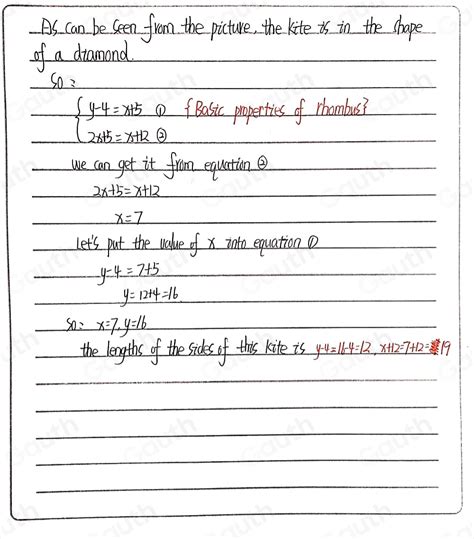 As can be seen from the picture, the kite is in the shape
of a diamond.
So:
y-4=x+5 ① {Basic properties of rhombus}
2x+5=x+12 ②
we can get it from equation ②
2x+5=x+12
x=7
Let's put the value of x into equation ①
y-4=7+5
y=12+4=16
So: x=7, y=16
the lengths of the sides of this kite is y-4=16-4=12, x+12=7+12=19